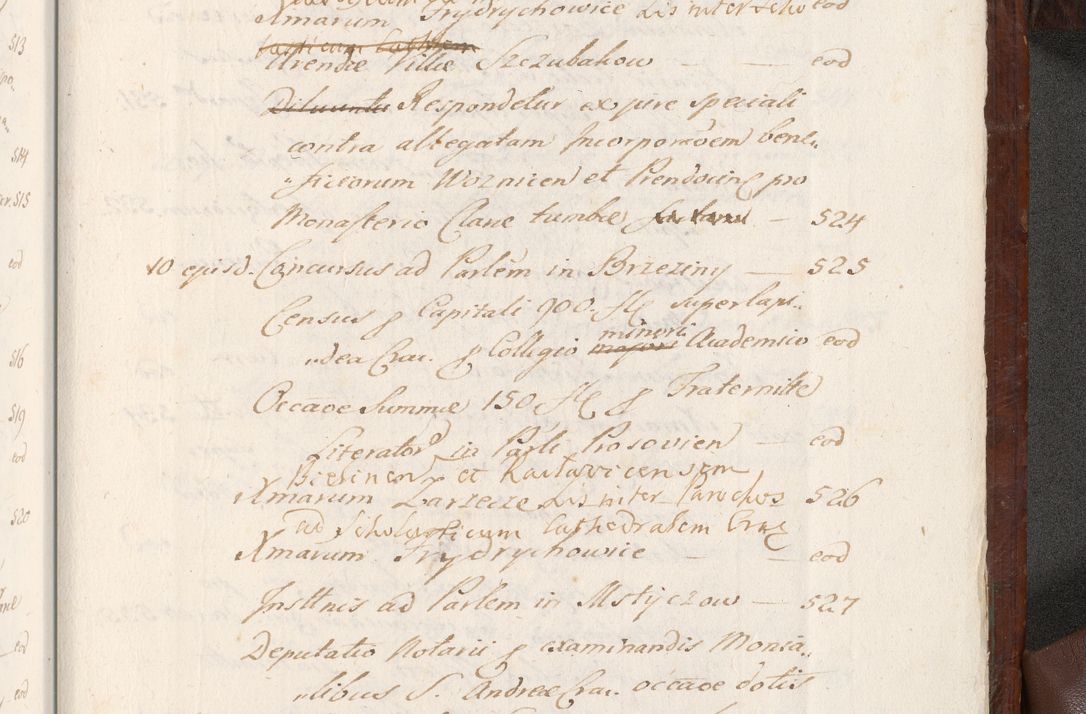 Xmarum Frydrychowice Lis inter Scho eod
Arendæ Villæ Szczubakow — — eod
Respondetur ex jure speciali
contra allegatam Incorporãoem bene„
„ficiorum Woznicen) et Prendocin pro
Monasterio Claræ tumbæ — 524
10 episd. Concursus ad Parlem in Brzeziny — 525
Census p Capitali 900 fl superlapi„
„dea Crac. p Collegio minori majori Academico eod
Occãoe Summæ 150 fl p Fraternite
Literator in Parli Prosovien — eod
Biesinen et Raclavicensem
Xmarum Zarzecze Lis inter Parochos 526
ad Scholasticum Cathedralem Crac
Xmarum Frydrychowice — — eod
Insttnis ad Parlem in Mstyczow — 527
Deputatio Notarii p examinandis Monia„
„libus S. Andreæ Crac. occãoe dotis
513
514
515
eod
516
519
eod
520
eod